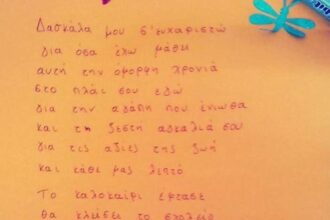 Δασκάλα μου σ'ευχαριστώ
Για όσα έχω μάθει
αυτή την όμορφη χρονιά
στο πλάι σου εδώ
Για την αγάπη που ένιωθα
και τη ζεστή αγκαλιά σου
για τις αξίες της ζωή
και κάθε μας λεπτό
Το καλοκαίρι έφτασε
θα κλείσει το σχολείο